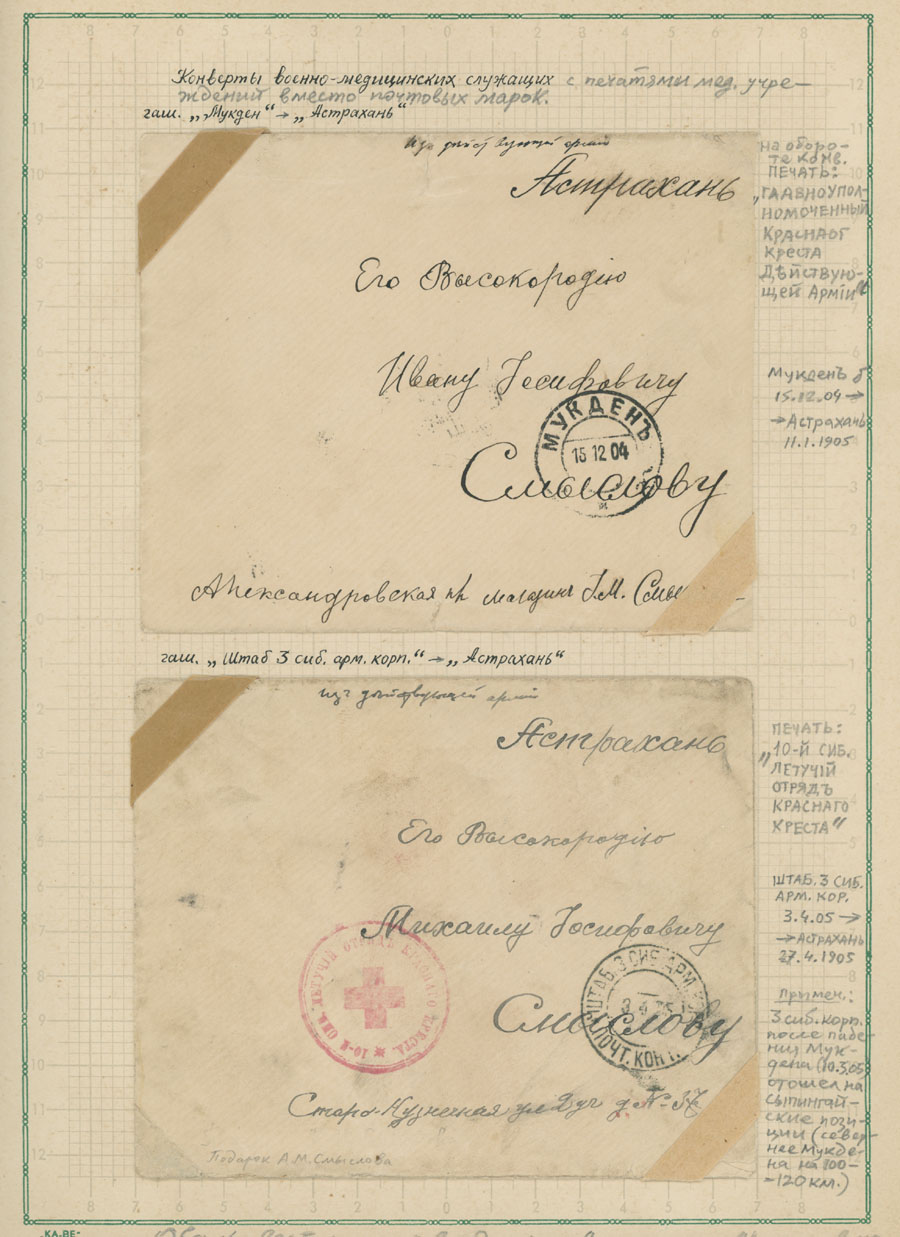 Конверты военно-медицинских служащих с печатями мед. учре-
ждений вместо почтовых марок.
гаш. „Мукден“ → „Астрахань“
изъ действующей армiи
Астрахань
Его Высокородiю
Ивану Iосифовичу
МУКДЕНЪ
15 12 04
Смыслову
Александровская магазинъ I.М.
на оборо-
те конв.
ПЕЧАТЬ:
„ГЛАВНОУПОЛ-
НОМОЧЕННЫЙ
КРАСНАОГ
КРЕСТА
ДѢЙСТВУЮ-
ЩЕЙ АРМІИ“
МУКДЕНЪ б
15.12.04 →
→ АСТРАХАНЬ
11.1.1905
гаш. „Штаб 3 сиб. арм. корп.“ → „Астрахань“
изъ действующей армiи
Астрахань
Его Высокородiю
Михаилу Iосифовичу
10-Й СИБ. ЛЕТУЧІЙ ОТРЯДЪ КРАСНАГО КРЕСТА
ШТАБ. 3 СИБ. АРМ.
3 4 05
ПОЧТ. КОНТ.
Смыслову
Старо-Кузнечная ул д № 37
Подарок А.М. Смыслова
ПЕЧАТЬ:
„10-Й СИБ.
ЛЕТУЧІЙ
ОТРЯДЪ
КРАСНАГО
КРЕСТА“
ШТАБ. 3 СИБ.
АРМ. КОР.
3.4.05 →
→ АСТРАХАНЬ
27.4.1905
Примеч.:
3 сиб. корп.
после паде-
ния Мук-
дена (10.3.05)
отошел на
сыпингай-
ские пози-
ции (север-
нее Мукде-
на на 100-
-120 км.)
„KA-BE“